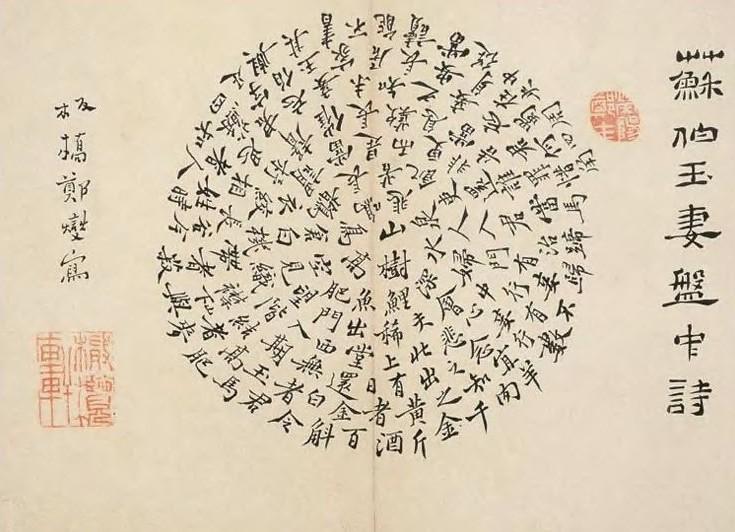 蘇伯玉妻盤中詩
山樹高
鳥鳴悲
泉水深
鯉魚肥
空倉雀
常苦飢
吏人婦
會夫稀
出門望
見白衣
謂當是
而更非
還入門
中心悲
北上堂
西入階
急機絞
杼聲催
長歎息
當語誰
君有行
妾念之
出有日
還無期
結襟帶
長相思
君忘妾
未知之
妾忘君
罪當治
妾有行
宜知之
黃者金
白者玉
高者
者谷
姓者蘇
字伯玉
家居長安身在蜀
何惜馬蹄歸不數
羊肉千斤酒百斛
令君馬肥麥與粟
今時人
知四足
與其書
不能讀
當從中央周四
板橋鄭燮寫